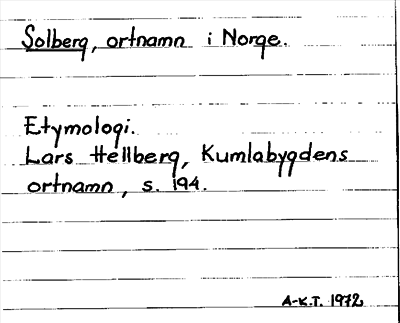 Solberg, ortnamn i Norge.
Etymologi.
Lars Hellberg, Kumlabygdens
ortnamn, s. 194.
A-K.T. 1972